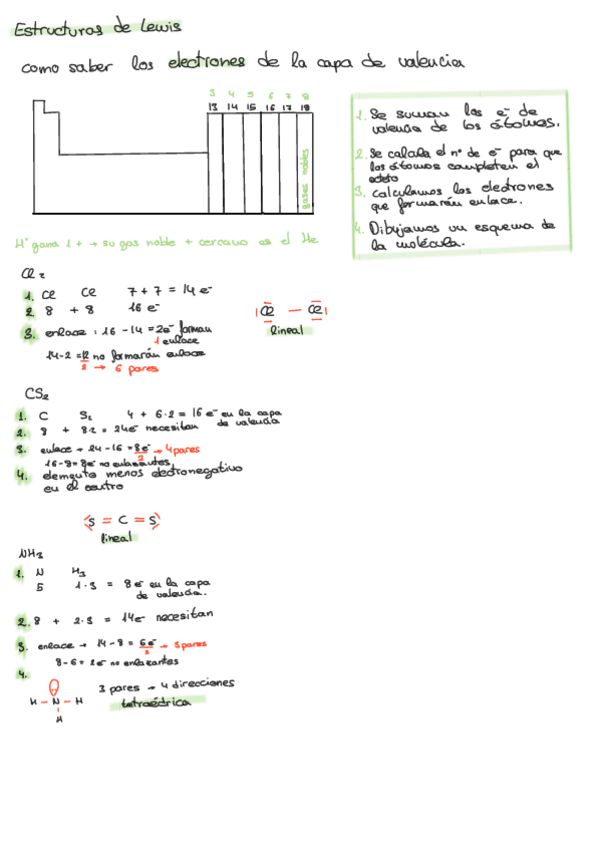 Estructuras de Lewis
como saber los electrones de la capa de valencia
3 4 5 6 7 8
13 14 15 16 17 18
gases nobles
1. Se suman los e⁻ de
valencia de los átomos.
2. Se calcula el nº de e⁻ para que
los átomos completen el
octeto
3. Calculamos los electrones
que formarán enlace.
4. Dibujamos un esquema de
la molécula.
H⁺ gana 1 + → su gas noble + cercano es el He
Cl₂
1. Cl Cl 7 + 7 = 14 e⁻
2. 8 + 8 16 e⁻
3. enlace : 16 - 14 = 2e⁻ forman
1 enlace
14-2 = 12 no formarán enlace
2 → 6 pares
Cl — Cl
lineal
CS₂
1. C S₂ 4 + 6·2 = 16 e⁻ en la capa
de valencia
2. 8 + 8·2 = 24e⁻ necesitan
3. enlace → 24-16 = 8e⁻ → 4 pares
2
16-8 = 8e⁻ no enlazantes
4. elemento menos electronegativo
en el centro
S = C = S
lineal
NH₃
1. N H₃
5 1·3 = 8e⁻ en la capa
de valencia.
2. 8 + 2·3 = 14e⁻ necesitan
3. enlace → 14-8 = 6e⁻ → 3 pares
2
8-6 = 2e⁻ no enlazantes
4.
H — N — H
H
3 pares → 4 direcciones
tetraédrica